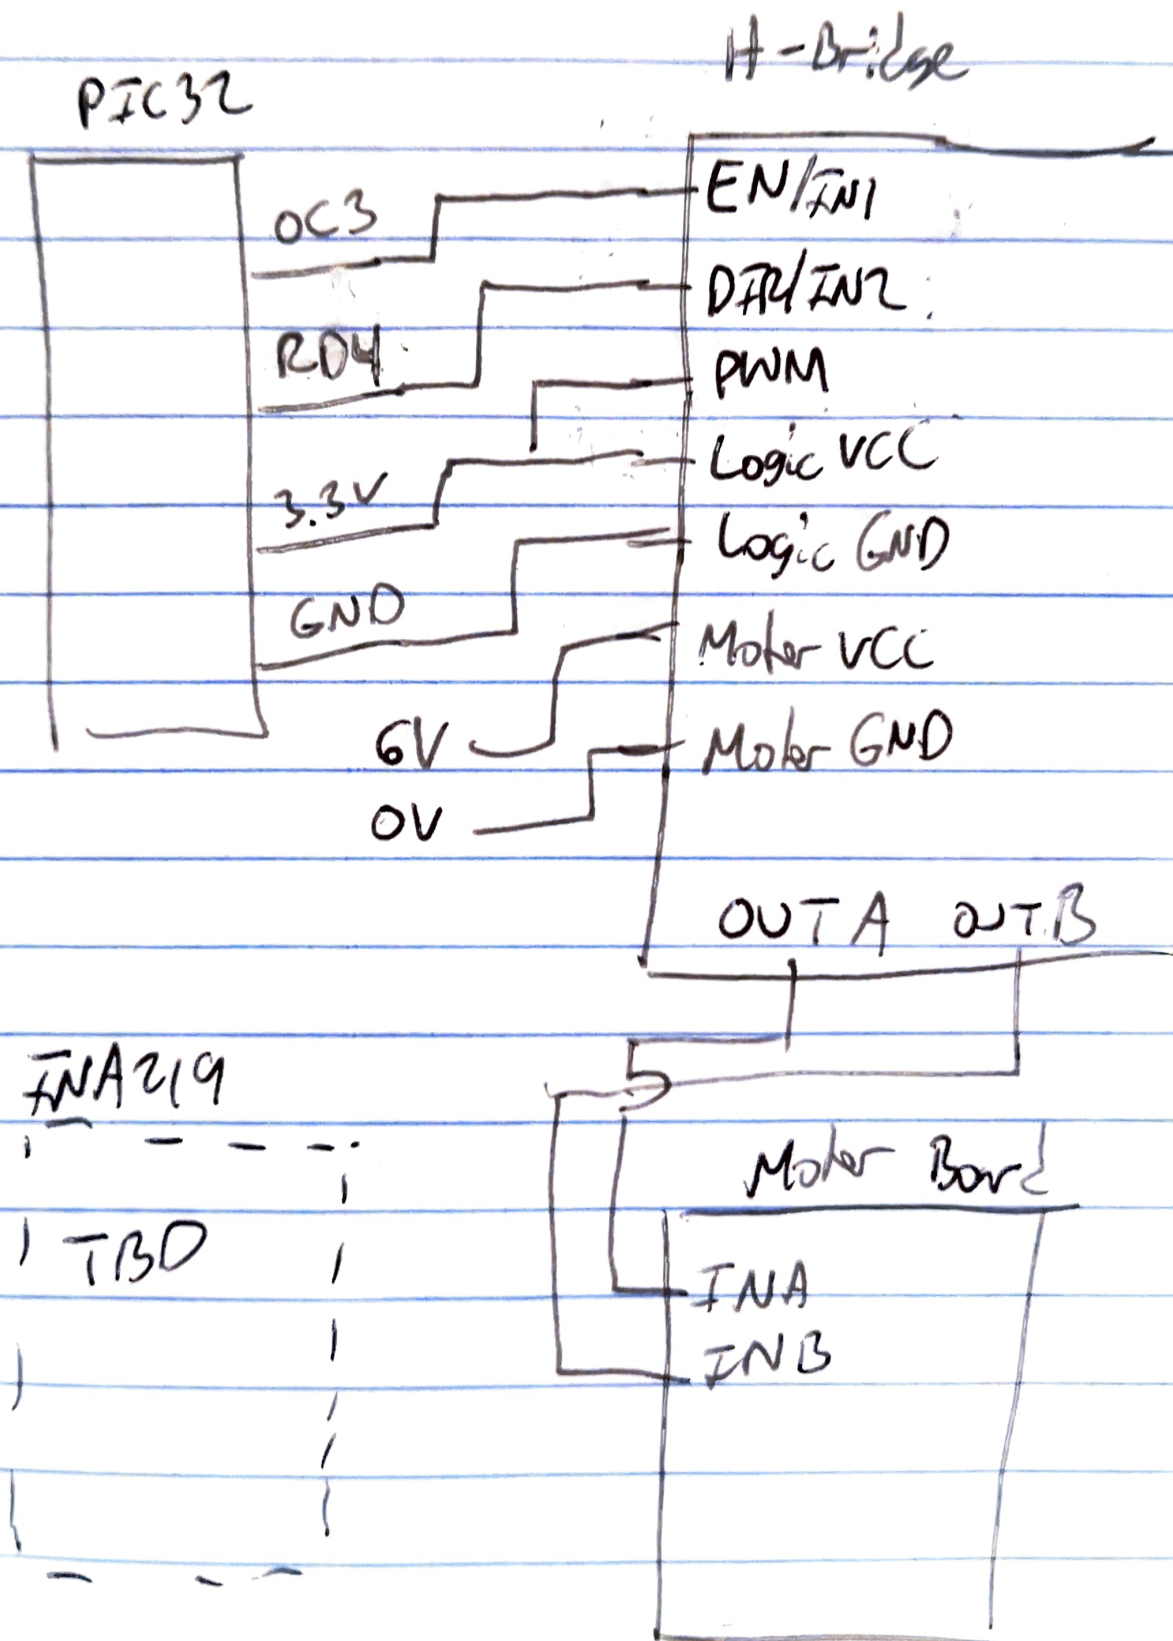 H-Bridge
PIC32
OC3
RD4
3.3V
GND
6V
0V
EN/IN1
DIR/IN2
PWM
Logic VCC
Logic GND
Motor VCC
Motor GND
OUTA OUTB
INA219
TBD
Motor Board
INA
INB